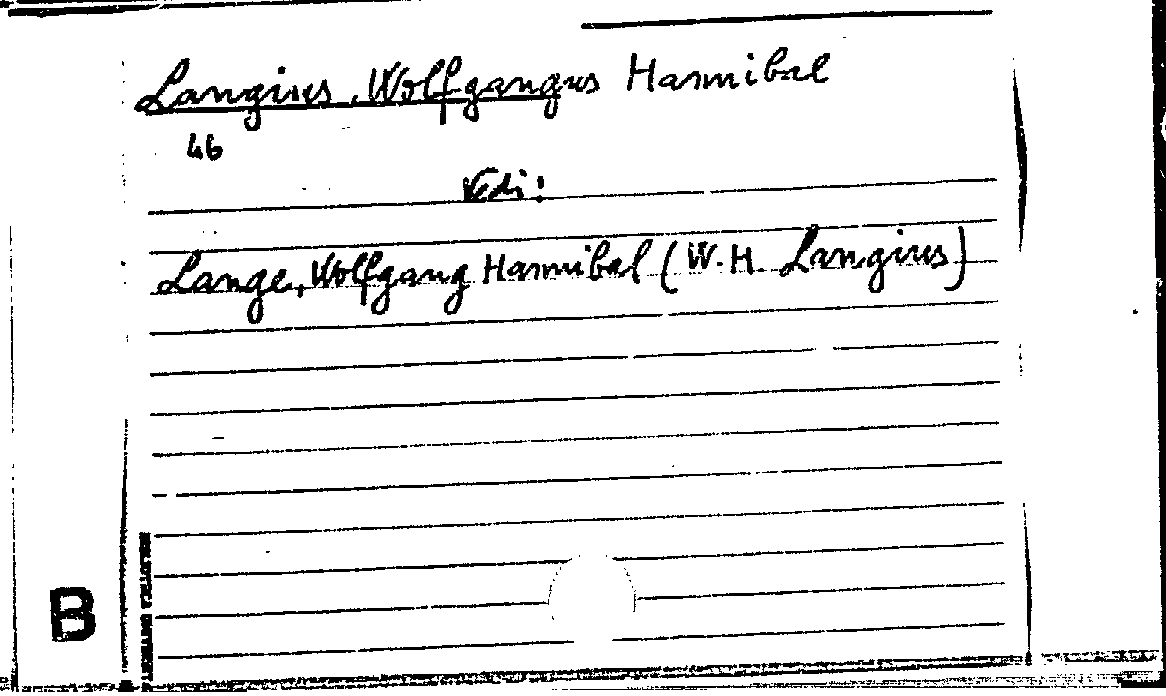 Langius, Wolfgangus Hannibal
46
Vedi:
Lange, Wolfgang Hannibal (W.H. Langius)
B